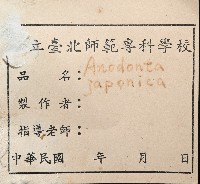 立臺北師範專科學校
品名：Anodonta
japonica
製作者：
指導老師：
中華民國 年 月 日